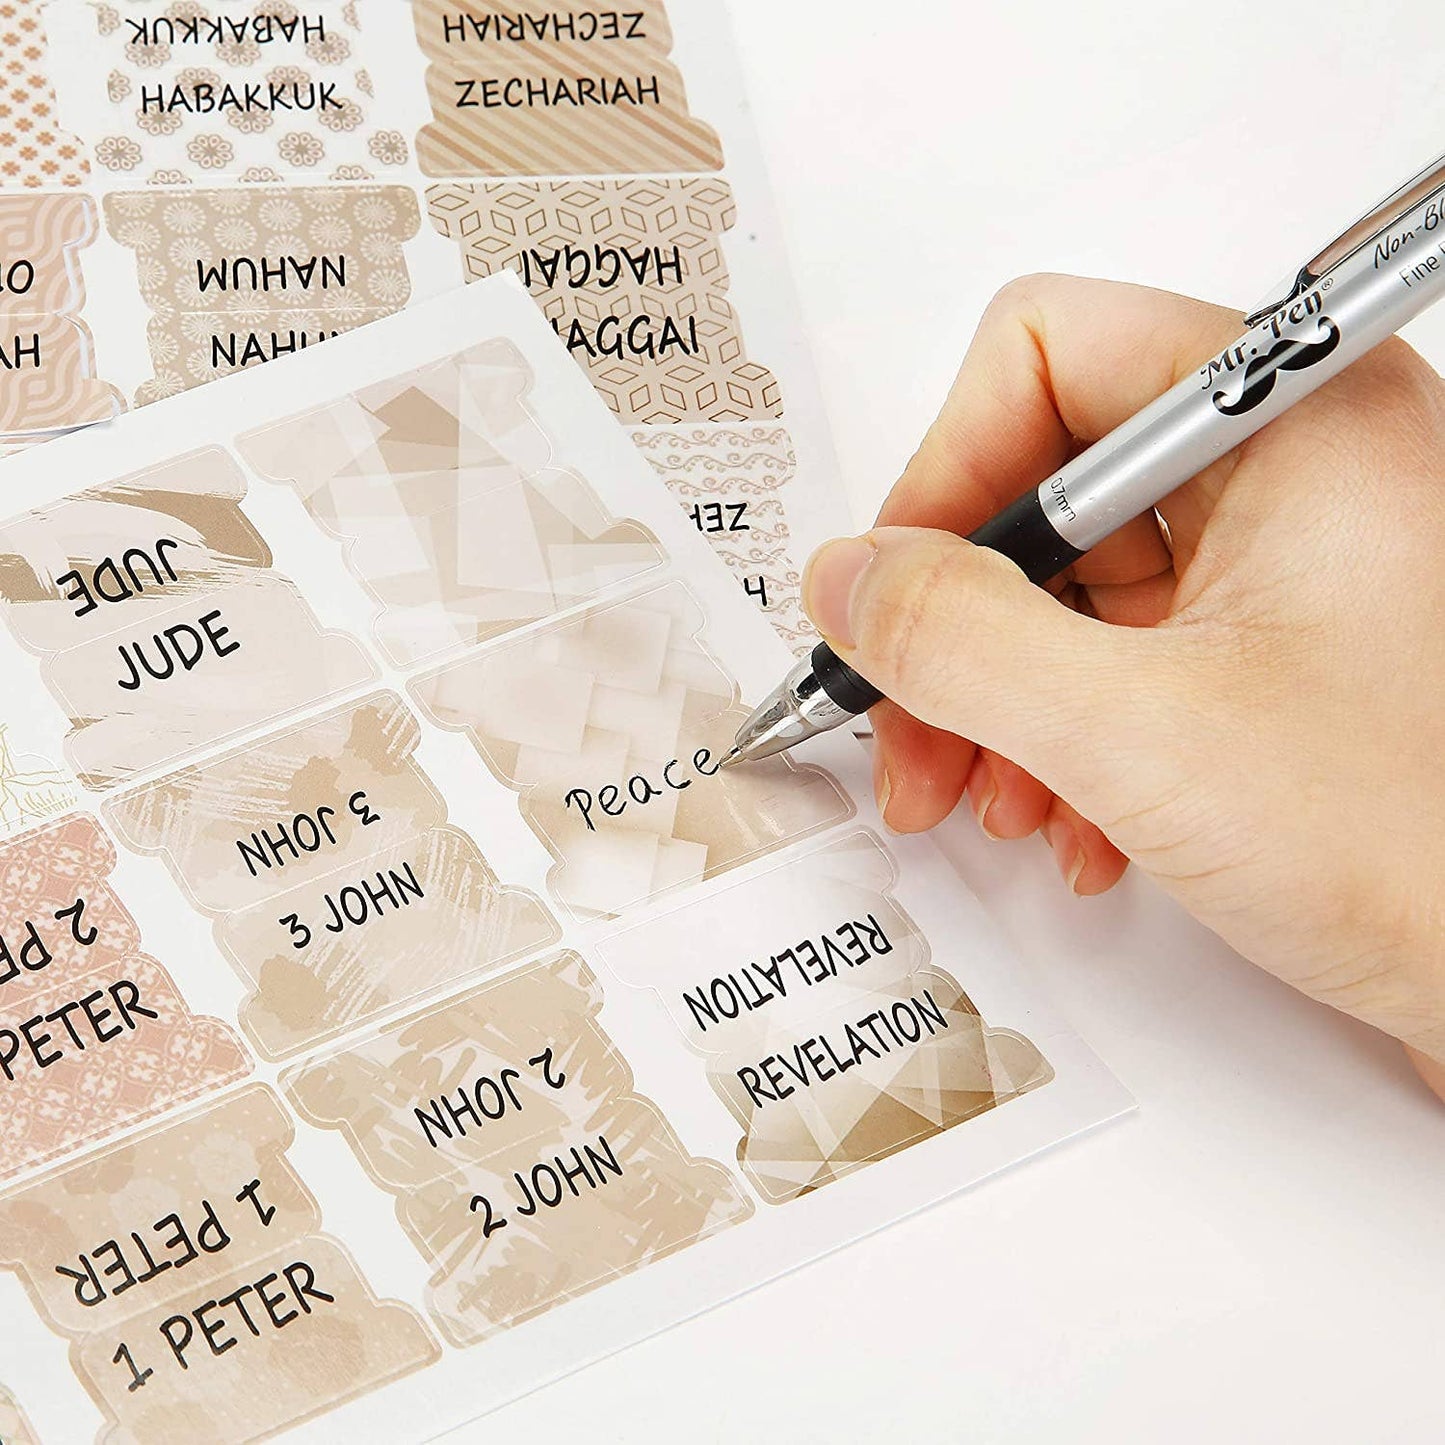 HABAKKUK
HABAKKUK
ZECHARIAH
ZECHARIAH
NAHUM
HAGGAI
AGGAI
Non-Bl
Fine
Mr. Pen®
0.7mm
JUDE
JUDE
Peace
3 JOHN
3 JOHN
REVELATION
REVELATION
PETER
2 JOHN
2 JOHN
1 PETER
1 PETER